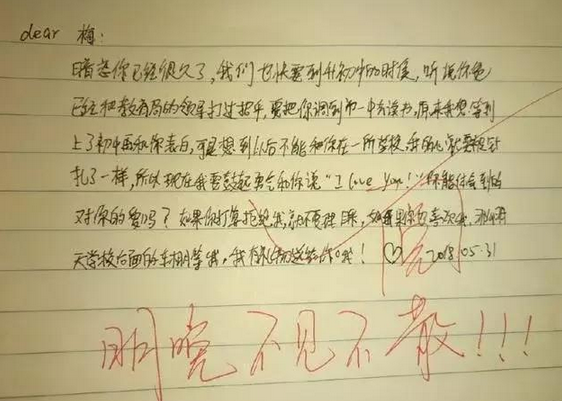 dear 梅：
暗恋你已经很久了，我们也快要到升初中的时候，听说你爸
已经把教育局的领导打过招呼，要把你调到市一中去读书，原来我想等到
上了初中再和你表白，可是想到以后不能和你在一所学校，我的心就要被针
扎了一样，所以现在我要鼓起勇气和你说“I love You！”你能体会到我
对你的爱吗？如果你打算拒绝我，就不要理睬，如果你也喜欢我，
天学校后面的车棚等我，我有礼物送给你哦！♡ 2018.05.31
阅
明晚不见不散!!!